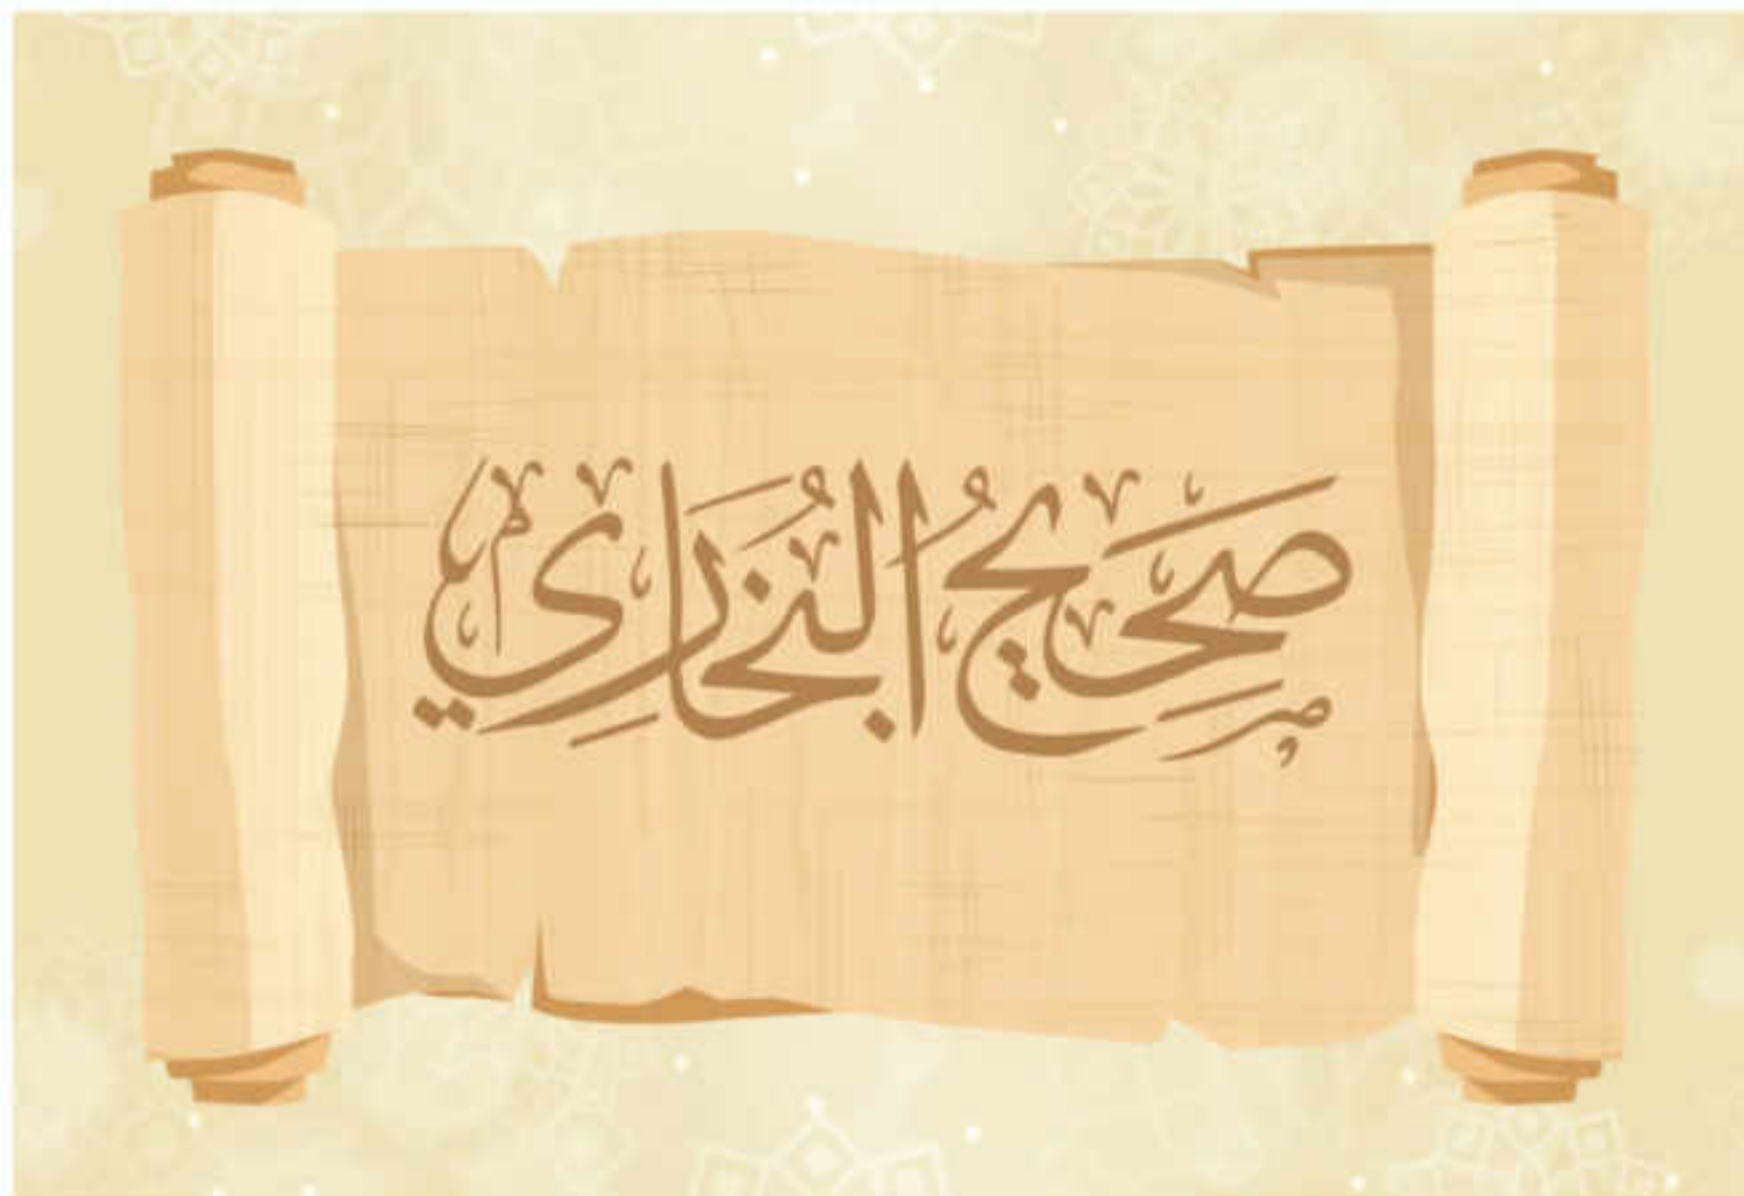 صَحِيحُ البُخَارِي